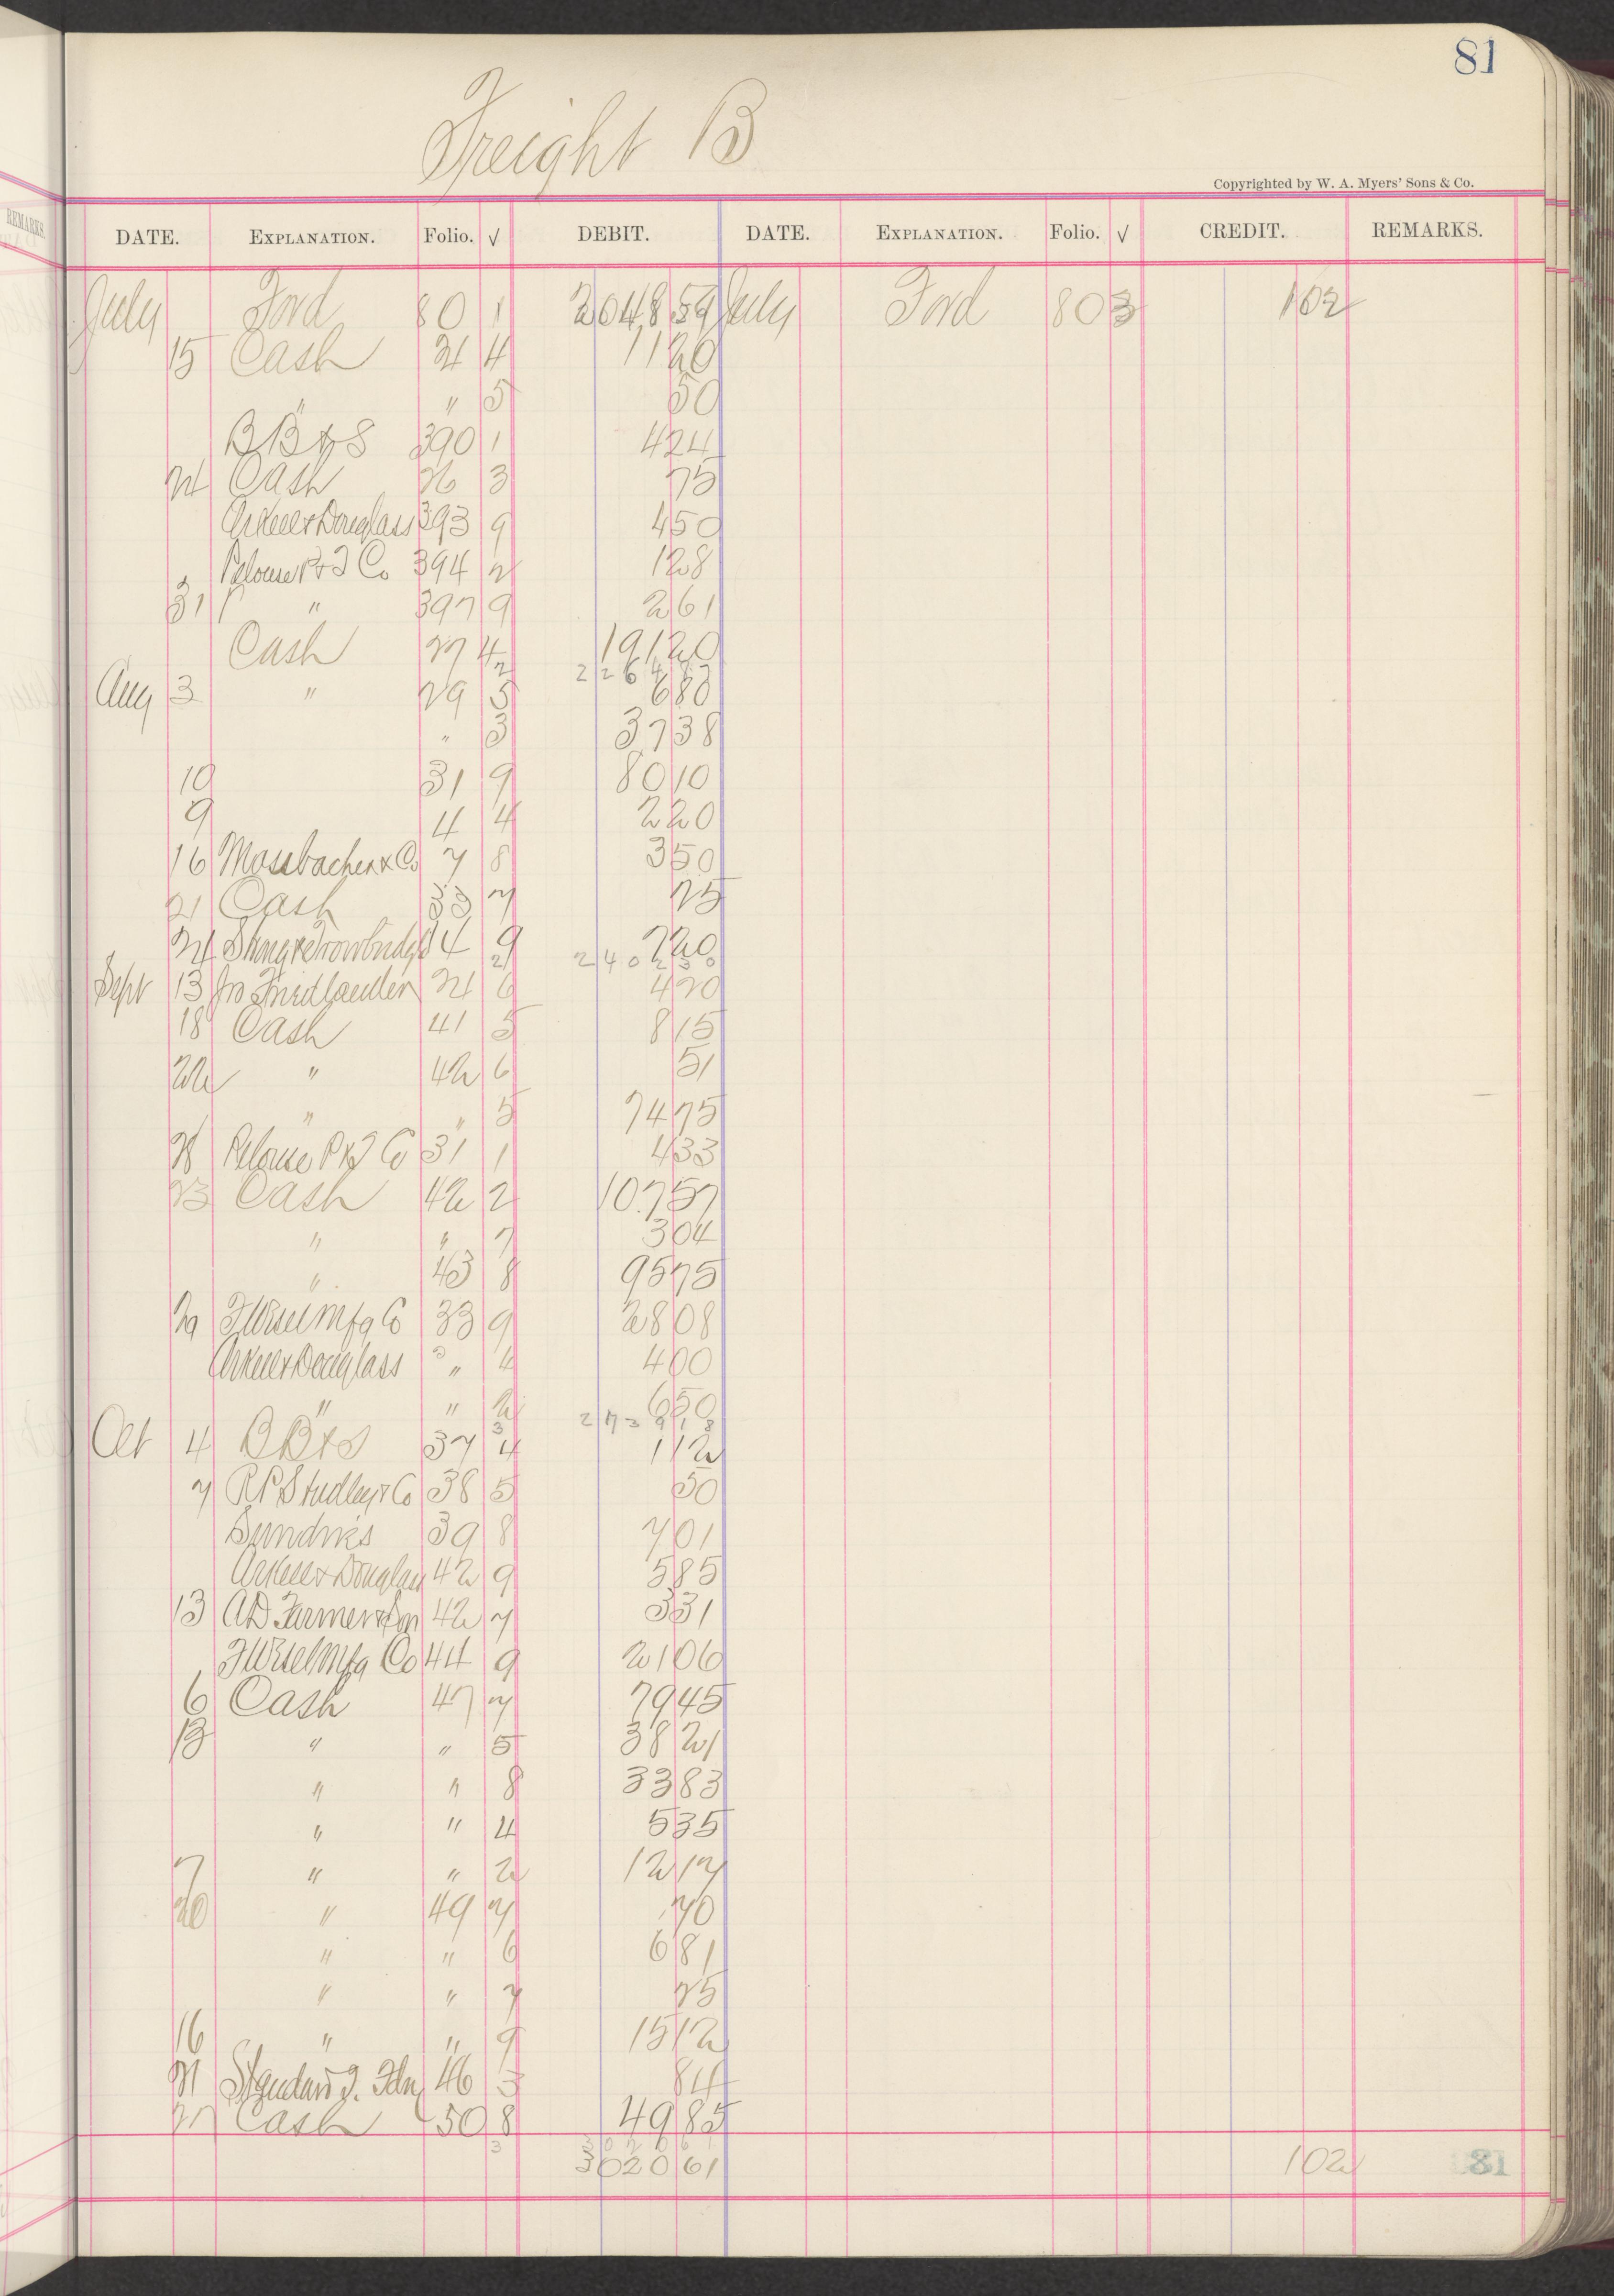 81
Freight B
Copyrighted by W. A. Myers' Sons & Co.
REMARKS
DATE. EXPLANATION. Folio. √ DEBIT. DATE. EXPLANATION. Folio. √ CREDIT. REMARKS.
July Ford 80 1 2048 59 July Ford 80 3 1 02
15 Cash 24 4 11 20
" " 5 50
BB&S 390 1 4 24
24 Cash 26 3 75
Arkell & Douglass 393 9 4 50
Palouse P & J Co 394 2 1 28
31 " 397 9 2 61
Cash 27 4 191 20
2
Aug 3 " 29 5 6 80
" 3 37 38
10 31 9 80 10
9 4 4 2 20
16 Mossbacher & Co 7 8 3 50
21 Cash 33 7 75
24 & Trowbridge 14 9 7 20
2
Sept 13 Jno Friedlander 24 6 4 20
18 Cash 41 5 8 15
22 " 42 6 51
" " 5 74 75
28 Palouse P & J Co 31 1 4 33
23 Cash 42 2 107 57
" " 7 3 04
" 43 8 95 75
29 F Wesel Mfg Co 33 9 28 08
Arkell & Douglass " 4 4 00
" " 2 6 50
3
Oct 4 BB&S 37 4 1 12
7 RP Studley & Co 38 5 50
Sundries 39 8 7 01
Arkell & Douglass 42 9 5 85
13 AD Farmer & Son 42 7 3 31
F Wesel Mfg Co 44 9 21 06
6 Cash 47 7 79 45
13 " " 5 38 21
" " 8 33 83
" " 4 5 35
7 " " 2 12 17
20 " 49 7 70
" " 6 6 81
" " 7 25
16 " " 9 15 12
21 46 3 84
27 Cash 50 8 49 85
3
3020 61 1 02 81